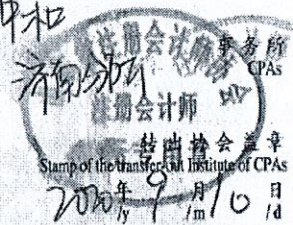 中和
济南分所 事务所
CPAs
注册会计师
转出协会盖章
Stamp of the transfer-out Institute of CPAs
2020年 9月 10日
/y /m /d